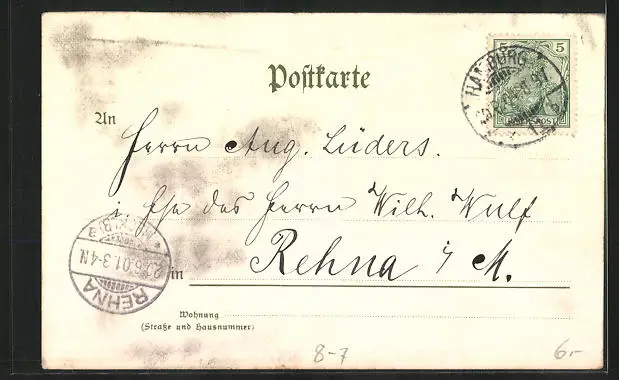 5 5
HAMBURG
REICHSPOST
Postkarte
An
Herrn Aug. Lüders.
i/ Fa des Herrn Wilh. Wulf
in Rehna i/ M.
REHNA
.5.01.3-4N.
Wohnung
(Straße und Hausnummer)
8-7
6.-